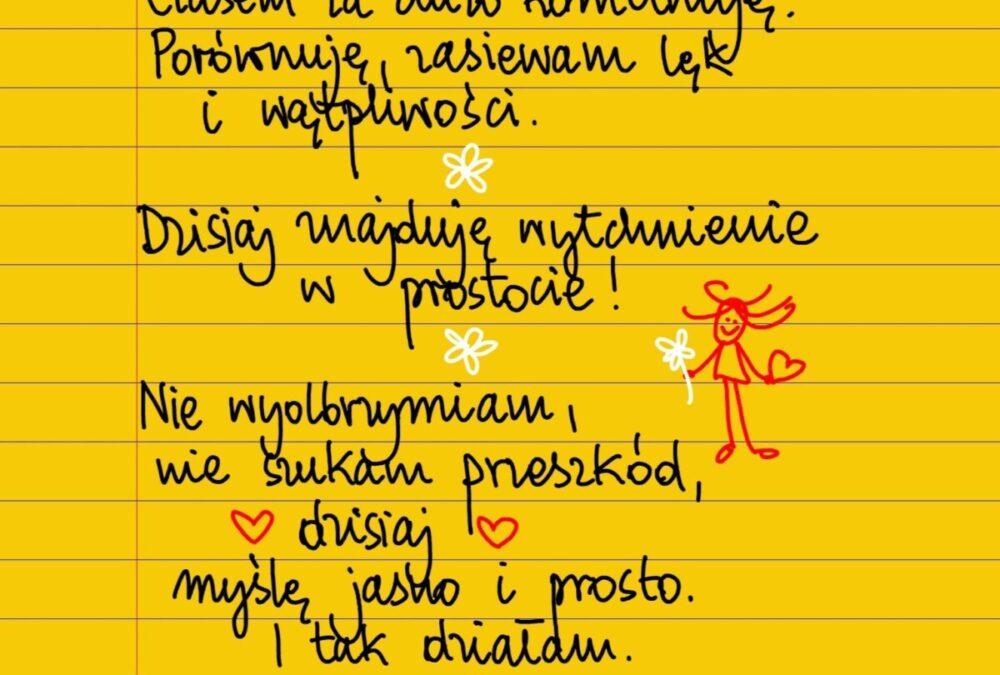 Czasem za dużo kombinuję.
Porównuję, zasiewam lęk
i wątpliwości.
Dzisiaj znajduję wytchnienie
w prostocie!
Nie wyolbrzymiam,
nie szukam przeszkód,
dzisiaj
myślę jasno i prosto.
I tak działam.